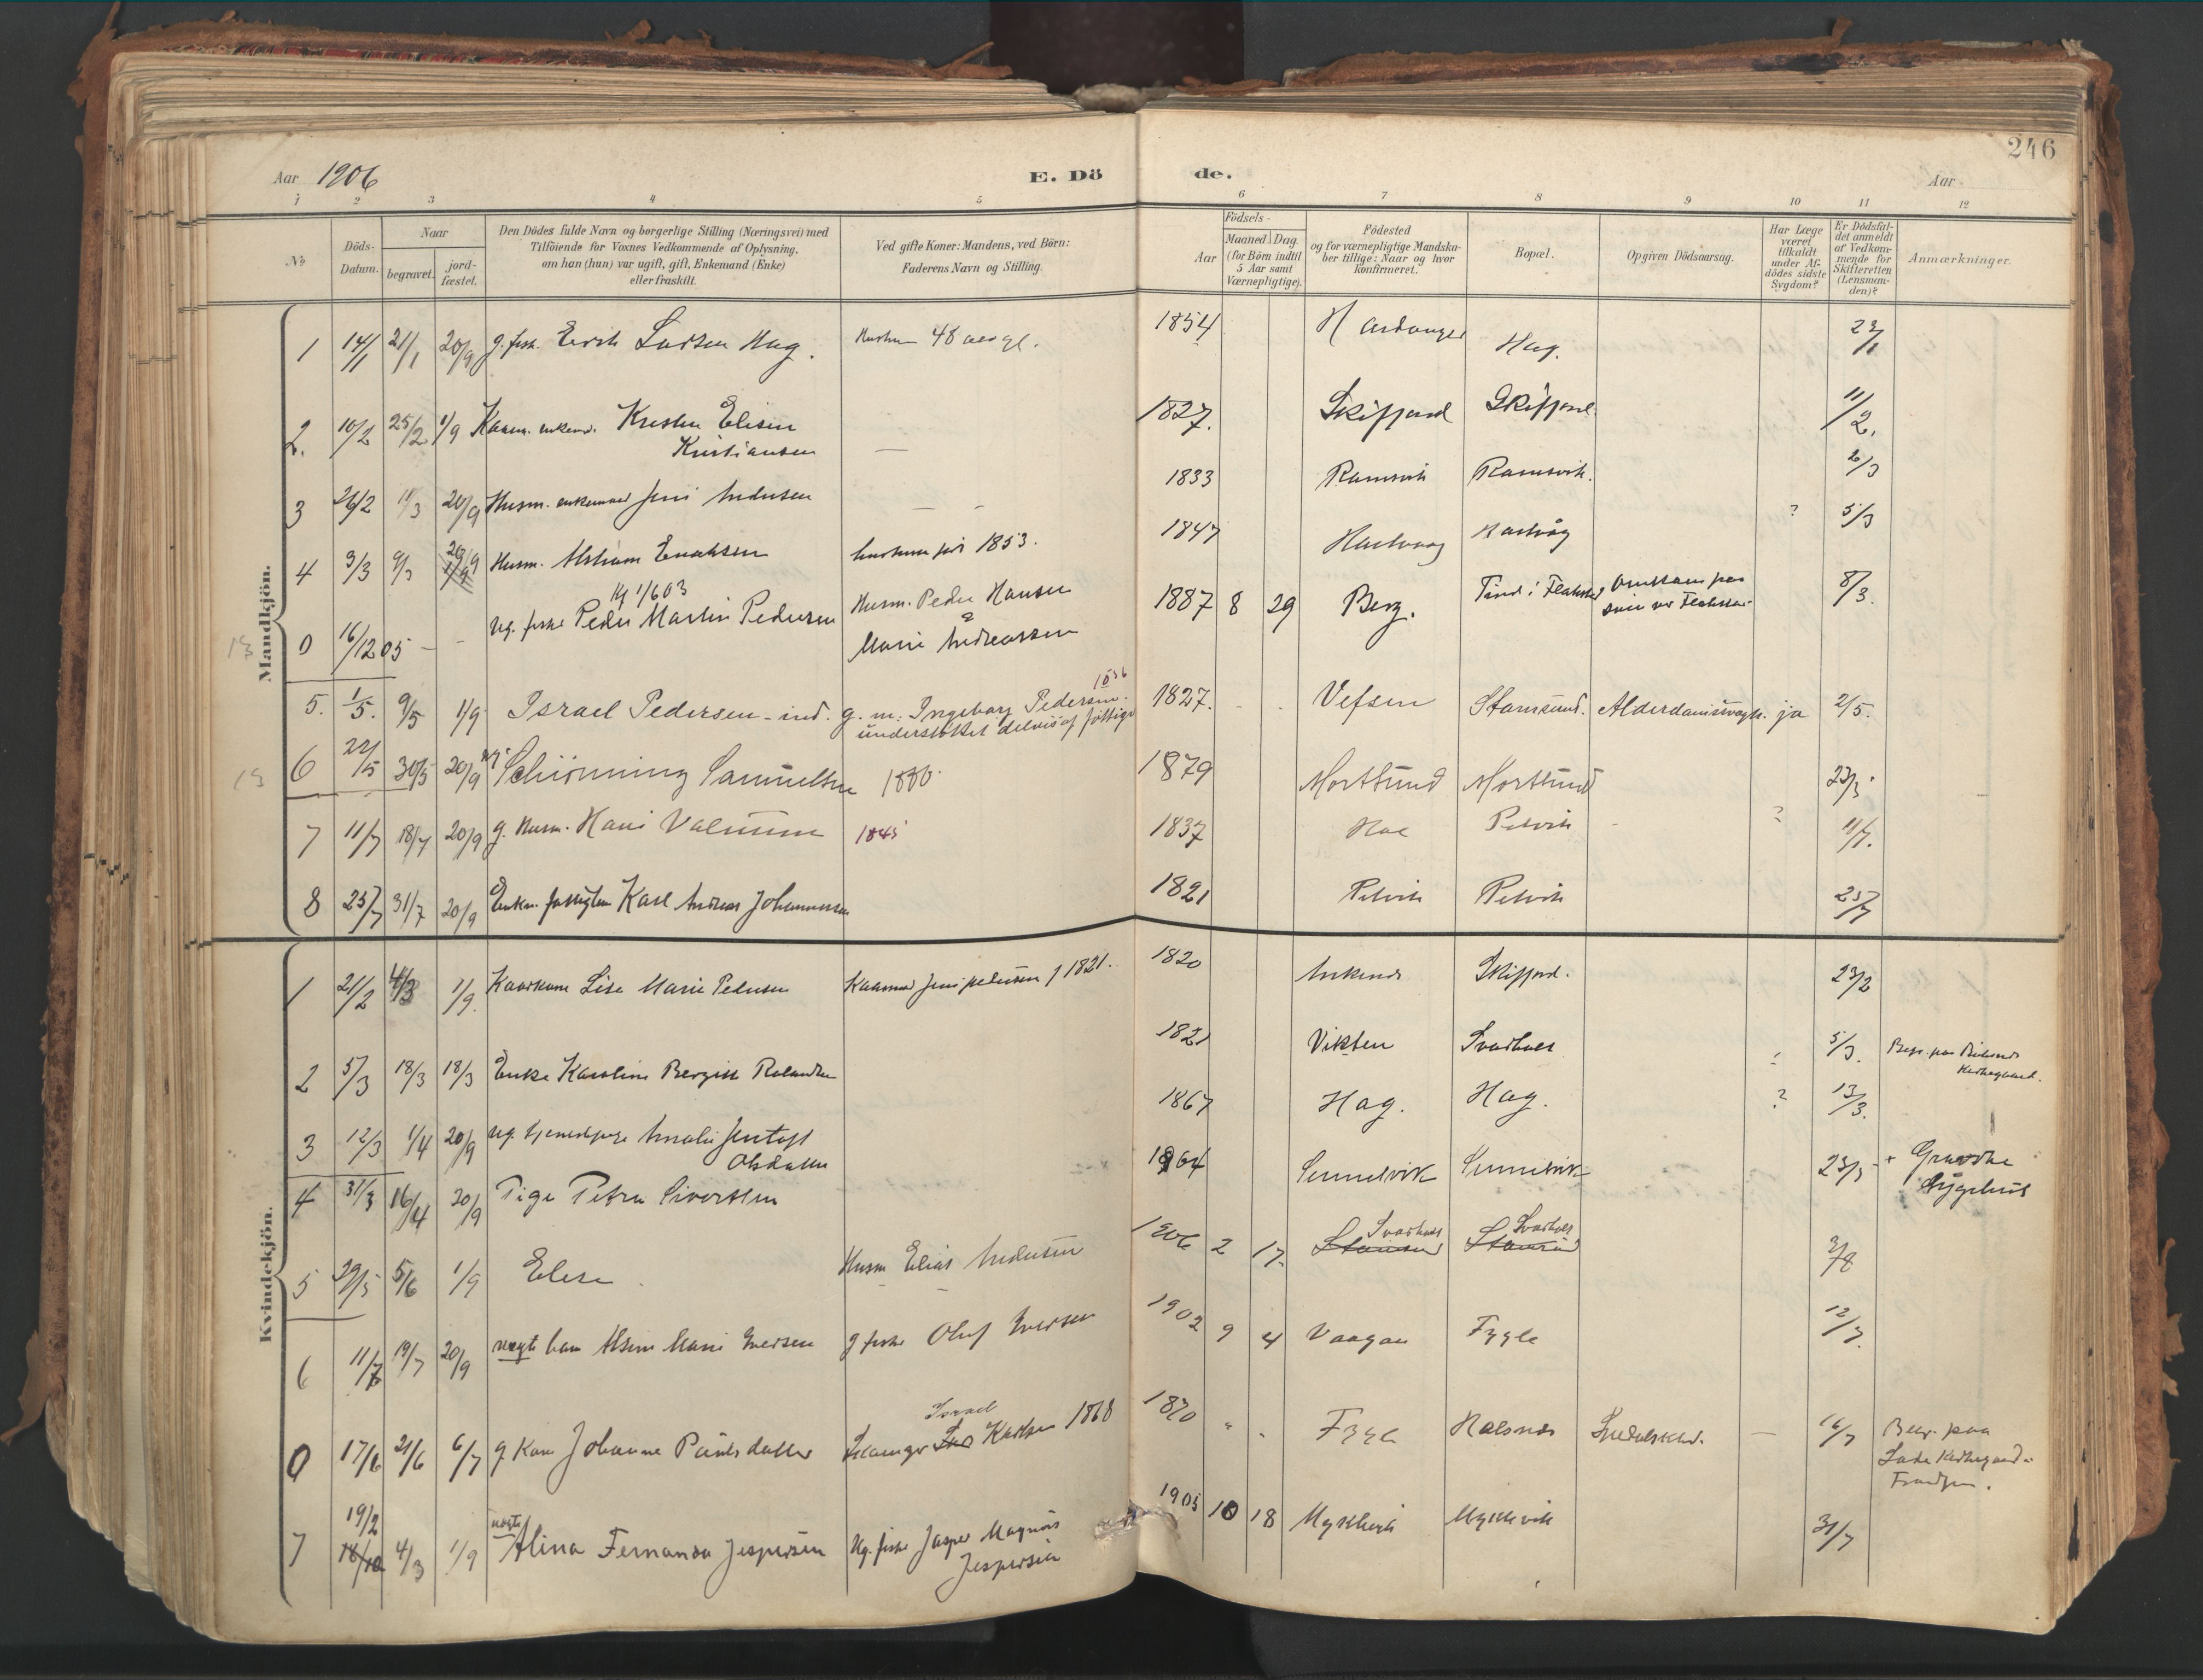 246
Aar 1906
E. Dö de.
Aar
1 2 3 4 5 6 7 8 9 10 11 12
No
Döds-Datum.
Naar
begravet.
jord-fæstet.
Den Dödes fulde Navn og borgerlige Stilling (Næringsvei) med
Tilföiende for Voxnes Vedkommende af Oplysning,
om han (hun) var ugift, gift, Enkemand (Enke)
eller fraskilt.
Ved gifte Koner: Mandens, ved Börn:
Faderens Navn og Stilling.
Födsels-
Aar
Maaned Dag
(for Börn indtil
5 Aar samt
Værnepligtige).
Födested
og for værnepligtige Mandska-
ber tillige: Naar og hvor
konfirmeret.
Bopæl.
Opgiven Dödsaarsag.
Har Læge
været
tilkaldt
under Af-
dödes sidste
Sygdom?
Er Dödsfal-
det anmeldt
af Vedkom-
mende for
Skifteretten
(Lensman-
den)?
Anmærkninger.
Mandkjön.
1 14/1 21/1 20/9 g. fisk. Larsen Hag. 48 1854 Hardanger Hag. 22/1
2. 10/2 25/2 1/9 Kristen Elisen
Kristiansen — 1827. Skifjord Skifjord 11/2.
3 26/2 11/3 20/9 Husm. enkemand Jens Andersen — 1833 Ramsvik Ramsvik. 2/3
4 3/3 9/3 20/9 Husm. 1853. 1847 ? 5/3
0 16/12 05 – – ug. fisker Peder Martin Pedersen
Husm. Peder Hansen
&
Marie Andreassen 1887 8 29 Berg. Tind i 8/3.
5. 1/5. 9/5 1/9 Israel Pedersen – ind. g. m. Ingeborg Pedersen. 1836
understöttet delvis af fattigv 1827. Vefsen Stamsund. ja 2/5.
6 22/5 30/5 20/9 ug. Schiönning Samuelsen 1880. 1879 Mortsund Mortsund 23/5.
7 11/7 18/7 20/9 g. Husm. Hans 1845 1837 Hol Petvik ? 11/7.
8 25/7 31/7 20/9 Karl Andreas Johannessen 1821 Petvik Petvik 25/7
Kvindekjön.
1 21/2 4/3 1/9. Lise Marie Pedersen Jens Pedersen f 1821. 1820 Skifjord. 23/2
2 5/3 18/3 18/3 Enke Karoline Bergitt 1821 Vikten Svarholt 5/3. Begr. paa
Kirkegaard.
3 12/3 1/4 20/9 ug. Amalie Jentoft
Olsdatter 1867 Hag. Hag. ? 13/3.
4 31/3 16/4 20/9 Pige Petra Sivertsen 1864 Sennesvik Sennesvik 23/3 +
Sygehus
5 29/5 5/6 1/9 Elise Husm Elias Andersen 1906 2 17. Stamsund Svarholt Stamsund Svarholt
6 11/7 19/7 20/9 uægte barn Marie Iversen g fisker Oluf Iversen 1902 9 4 Vaagan Fygle 12/7.
0 17/6 21/6 6/7 g Kone Johanne Paulsdatter Israel Karlsen 1868 1870 " " Fygle — 16/7 Begr. paa
Lade Kirkegaard.
7 19/2 18/10 4/3 1/9 uægte Alina Fernanda Jespersen Ug. fisker Jasper Magnus
Jespersen 1905 10 18 Myklevik Myklevik 31/7